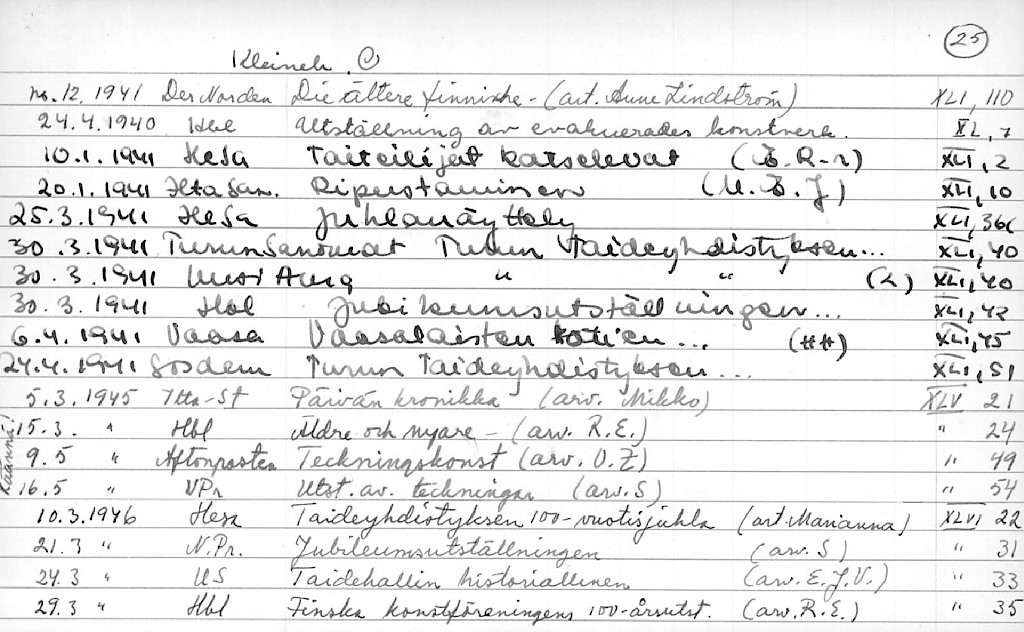 25
Kleineh, O
no. 12. 1941 Der Norden Die ältere finnische - (art. Aune Lindström) XLI, 110
24.4.1940 Hbl Utställning av evakuerades konstverk. XL, 7
10.1.1941 HeSa Taiteilijat katselevat (E.R-r) XLI, 2
20.1.1941 IltaSan. Ripustaminen (U.E.J) XLI, 10
25.3.1941 HeSa Juhlanäyttely XLI, 36
30.3.1941 Turun Sanomat Turun Taideyhdistyksen... XLI, 40
30.3.1941 Uusi Aura " " (L) XLI, 40
30.3.1941 Hbl Jubileumsutställningen... XLI, 42
6.4.1941 Vaasa Vaasalaisten kotien... (HH) XLI, 45
24.4.1941 Sosdem Turun Taideyhdistyksen... XLI, 51
5.3.1945 Ilta-St Päivän kronikka (arv. Mikko) XLV 21
15.3. " Hbl Äldre och nyare - (arv. R.E.) " 24
9.5 " Aftonposten Teckningskonst (arv. O.Z) " 49
16.5 " VPr Utst. av. teckningar (arv. S) " 54
10.3.1946 Hesa Taideyhdistyksen 100-vuotisjuhla (art. Marianna) XLVI 22
21.3 " N.Pr. Jubileumsutställningen (arv. S) " 31
24.3 " US Taidehallin historiallinen (arv. E.J.V.) " 33
29.3 " Hbl Finska konstföreningens 100-årsutst. (arv. R.E.) " 35
Käännä!